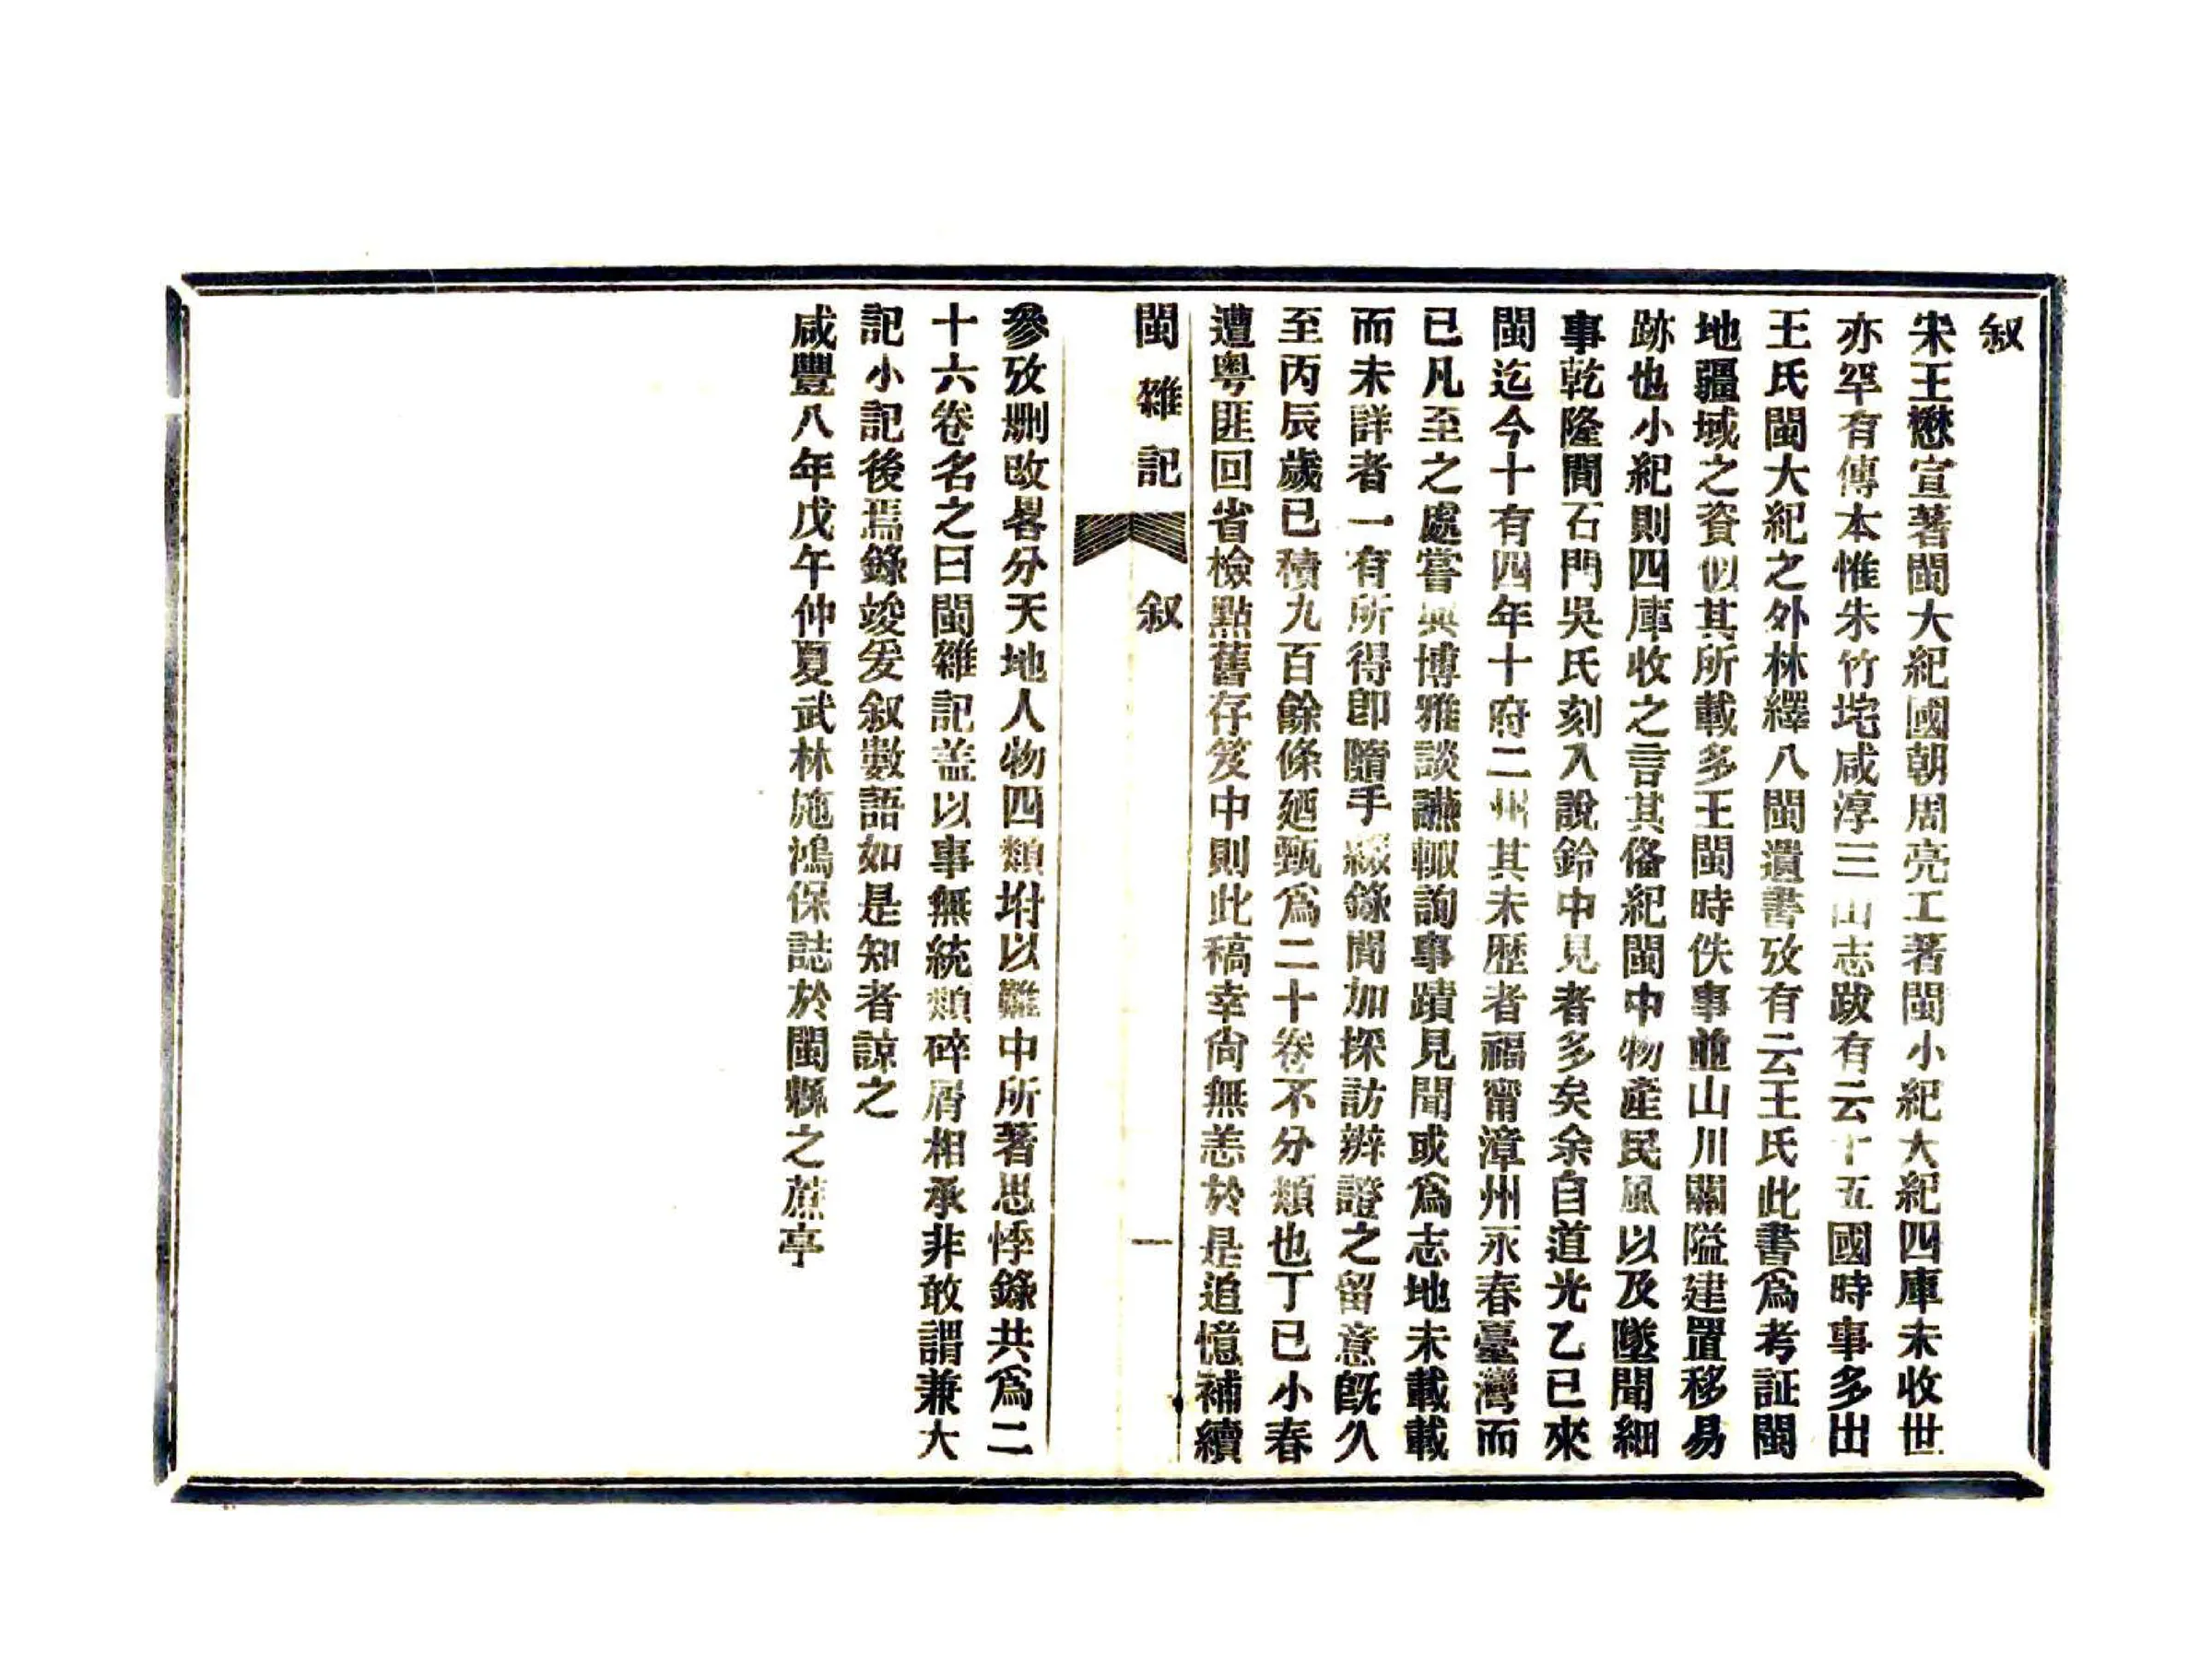 叙
宋王懋宣著閩大紀國朝周亮工著閩小紀大紀四庫未收世
亦罕有傳本惟朱竹垞咸淳三山志跋有云十五國時事多出
王氏閩大紀之外林繹八閩遺書攷有云王氏此書爲考証閩
地疆域之資似其所載多王閩時佚事並山川關隘建置移易
跡也小紀則四庫收之言其俻紀閩中物產民風以及墜聞細
事乾隆間石門吳氏刻入說鈴中見者多矣余自道光乙巳來
閩迄今十有四年十府二州其未歷者福甯漳州永春臺灣而
已凡至之處嘗與博雅談讌輙詢事蹟見聞或爲志地未載載
而未詳者一有所得卽隨手綴錄間加探訪辨證之留意旣久
至丙辰歲已積九百餘條廼甄爲二十卷不分類也丁巳小春
遭粤匪回省檢點舊存笈中則此稿幸尙無恙於是追憶補續
閩雜記 叙 一
參攷刪改畧分天地人物四類坿以難中所著思悸錄共爲二
十六卷名之曰閩雜記盖以事無統類碎屑相承非敢謂兼大
記小記後焉錄竣爰叙數語如是知者諒之
咸豐八年戊午仲夏武林施鴻保誌於閩縣之蔗亭